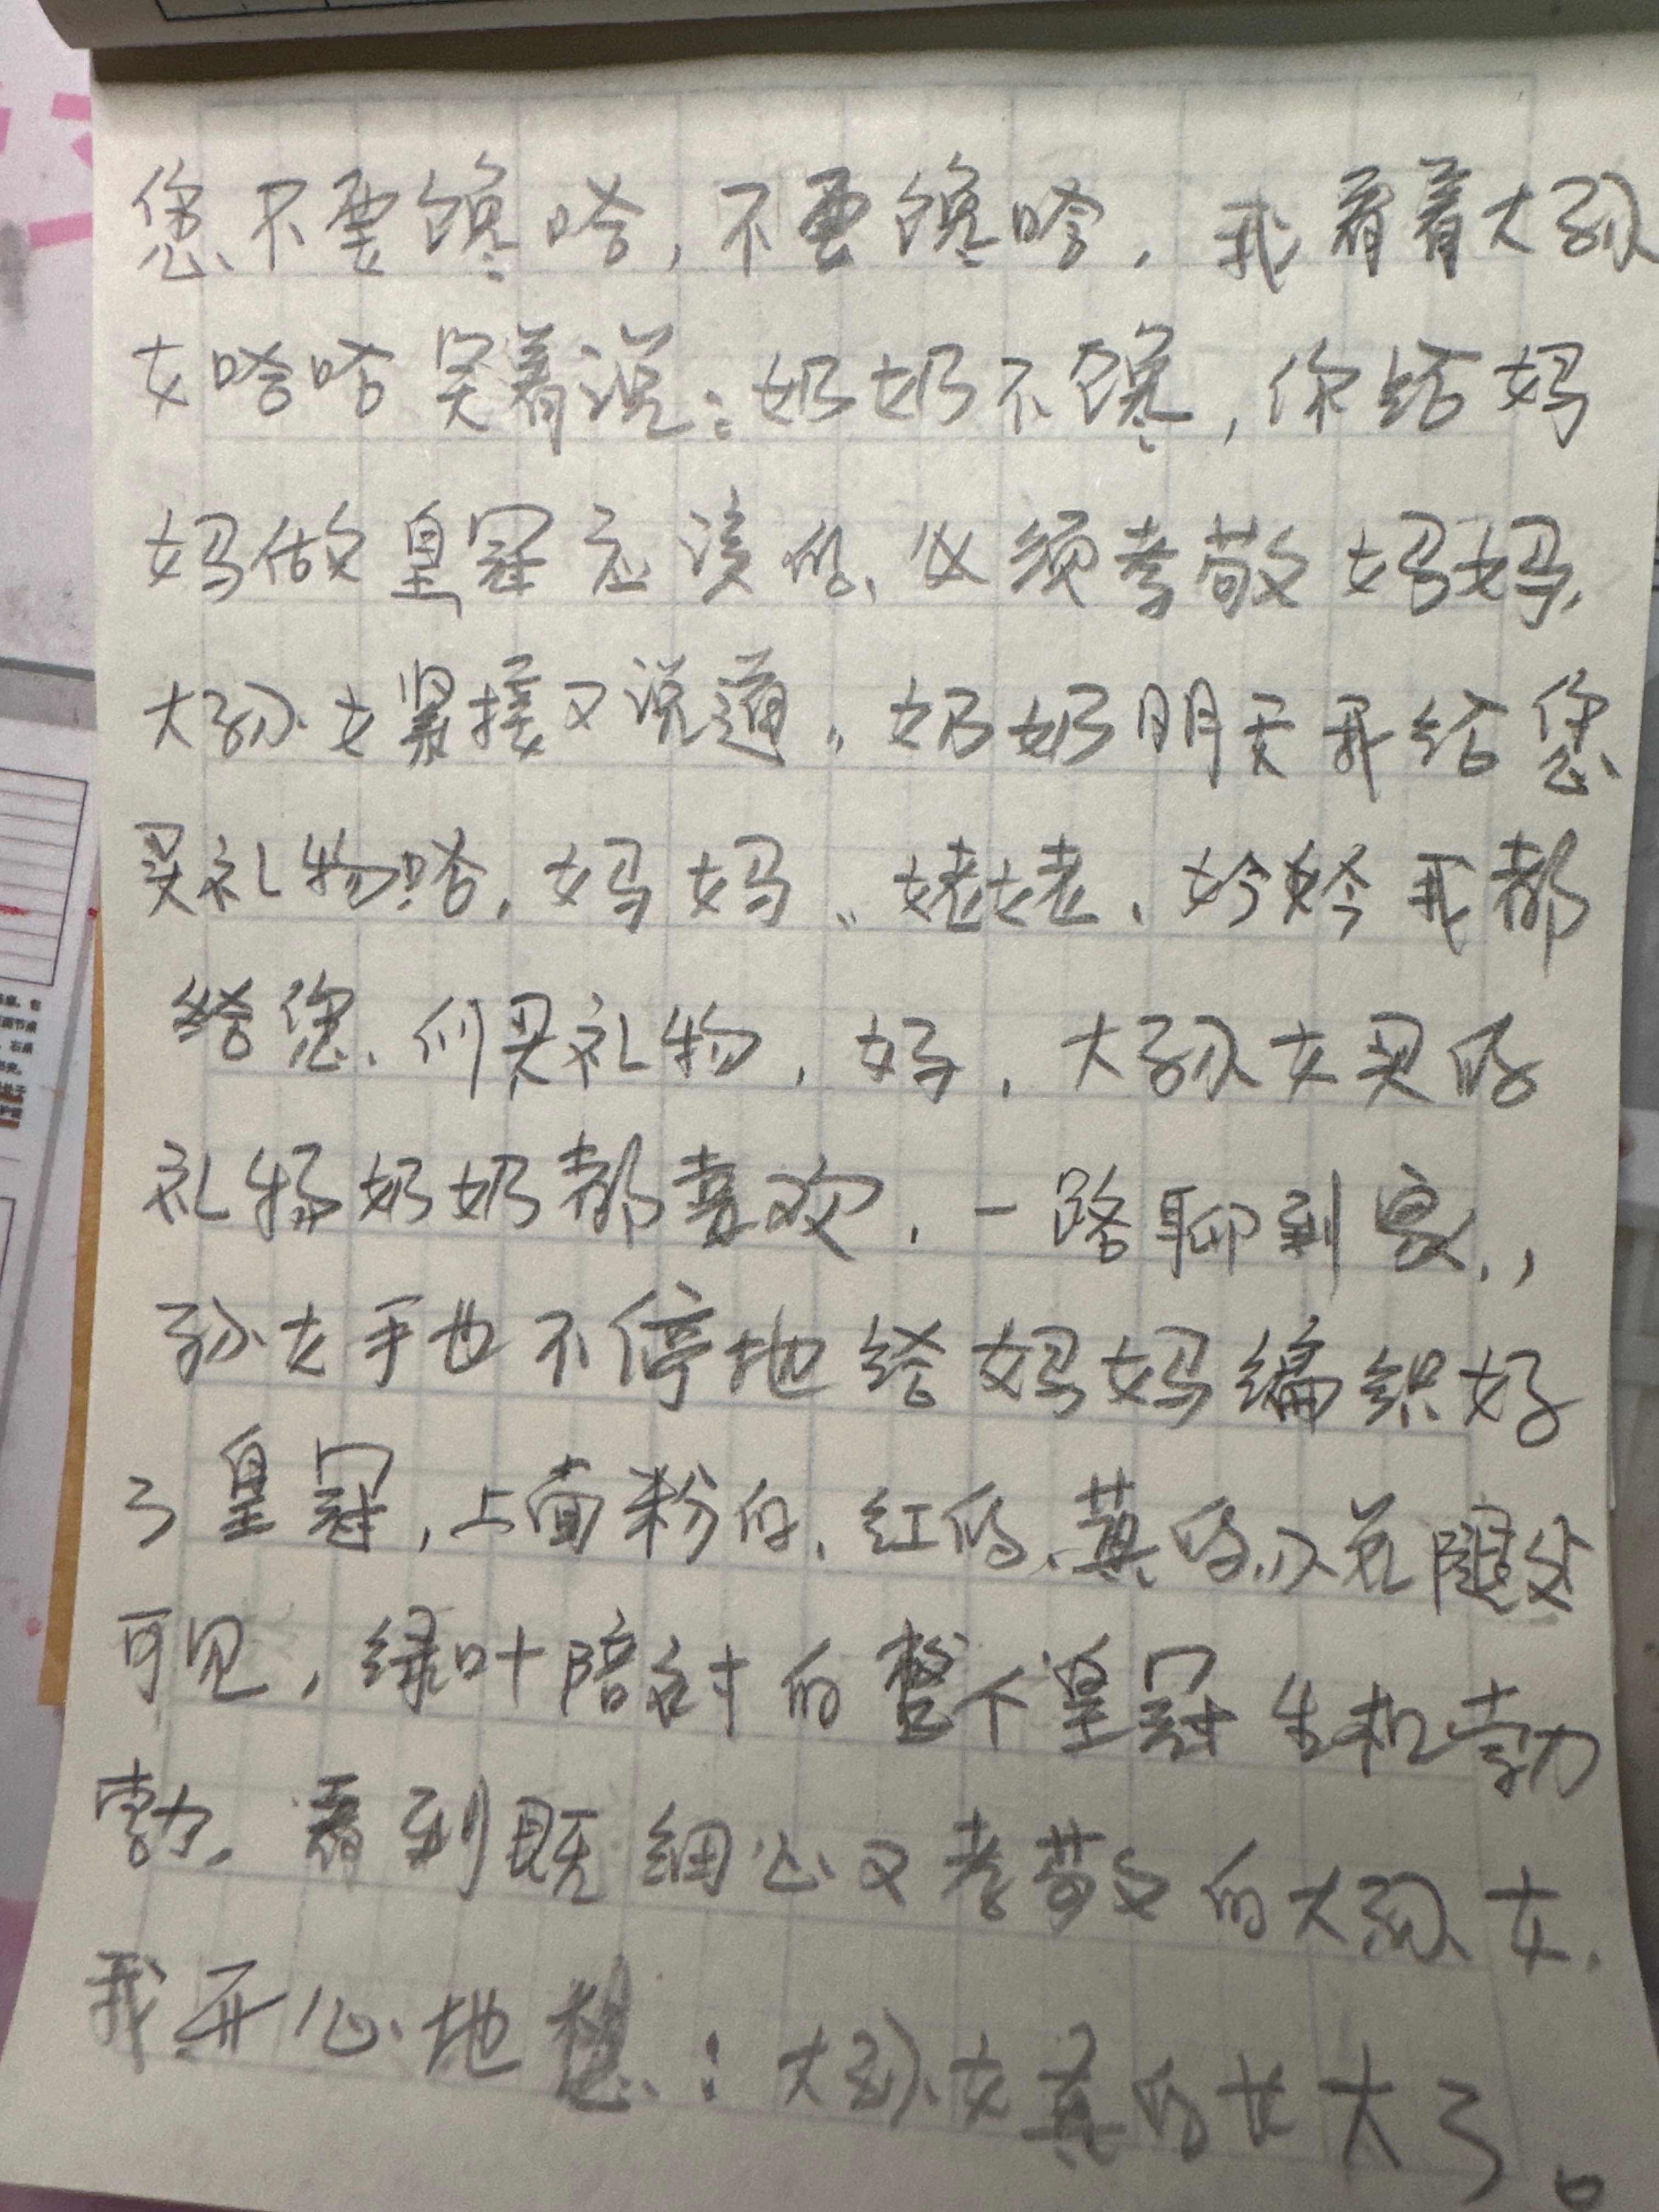 您不要馋哈，不要馋哈，我看着大孙
女哈哈笑着说：奶奶不馋，你给妈
妈做皇冠应该的、必须孝敬妈妈，
大孙女紧接又说道，奶奶明天我给您
买礼物哈，妈妈、姥姥、妗妗我都
给您们买礼物，好，大孙女买的
礼物奶奶都喜欢，一路聊到家，，
孙女手也不停地给妈妈编织好
了皇冠，上面粉的、红的、黄的小花随处
可见，绿叶陪衬的整个皇冠生机勃
勃。看到既细心又孝敬的大孙女，
我开心地想：大孙女真的长大了。